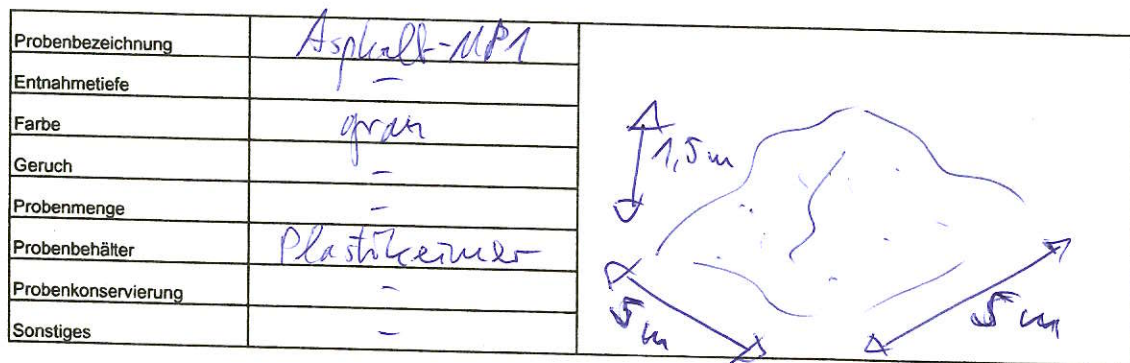 Probenbezeichnung Asphalt-MP1
Entnahmetiefe -
Farbe grau
Geruch -
Probenmenge -
Probenbehälter Plastikeimer
Probenkonservierung -
Sonstiges -
1,5m
5m
5m